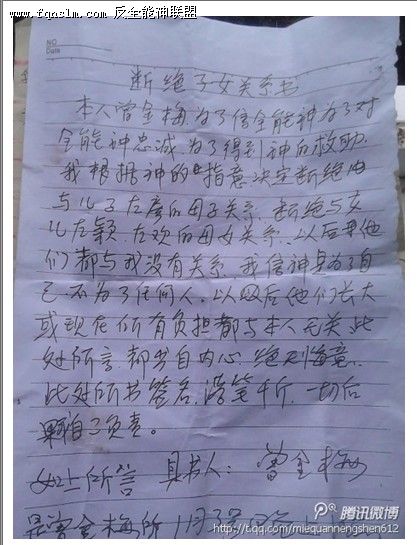 www.fqnslm.com 反全能神联盟
NO
Date
断绝子女关系书
本人曾金梅为了信全能神为了对
全能神忠诚、为了得到神的救助、
我根据神的旨意决定断绝
与儿子左彦的母子关系、断绝与女
儿左颖、左欢的母女关系、以后
们都与我没有关系、我信神是为了自
己、不为了任何人。以后他们长大
或现在所有负担都与本人无关、此
处所言、都出自内心 绝不
此处所书签名、落笔千斤、一切后
果自己负责。
如上所言 具书人: 曾金梅
是曾金梅所 11月
腾讯微博
http://t.qq.com/miequannengshen612